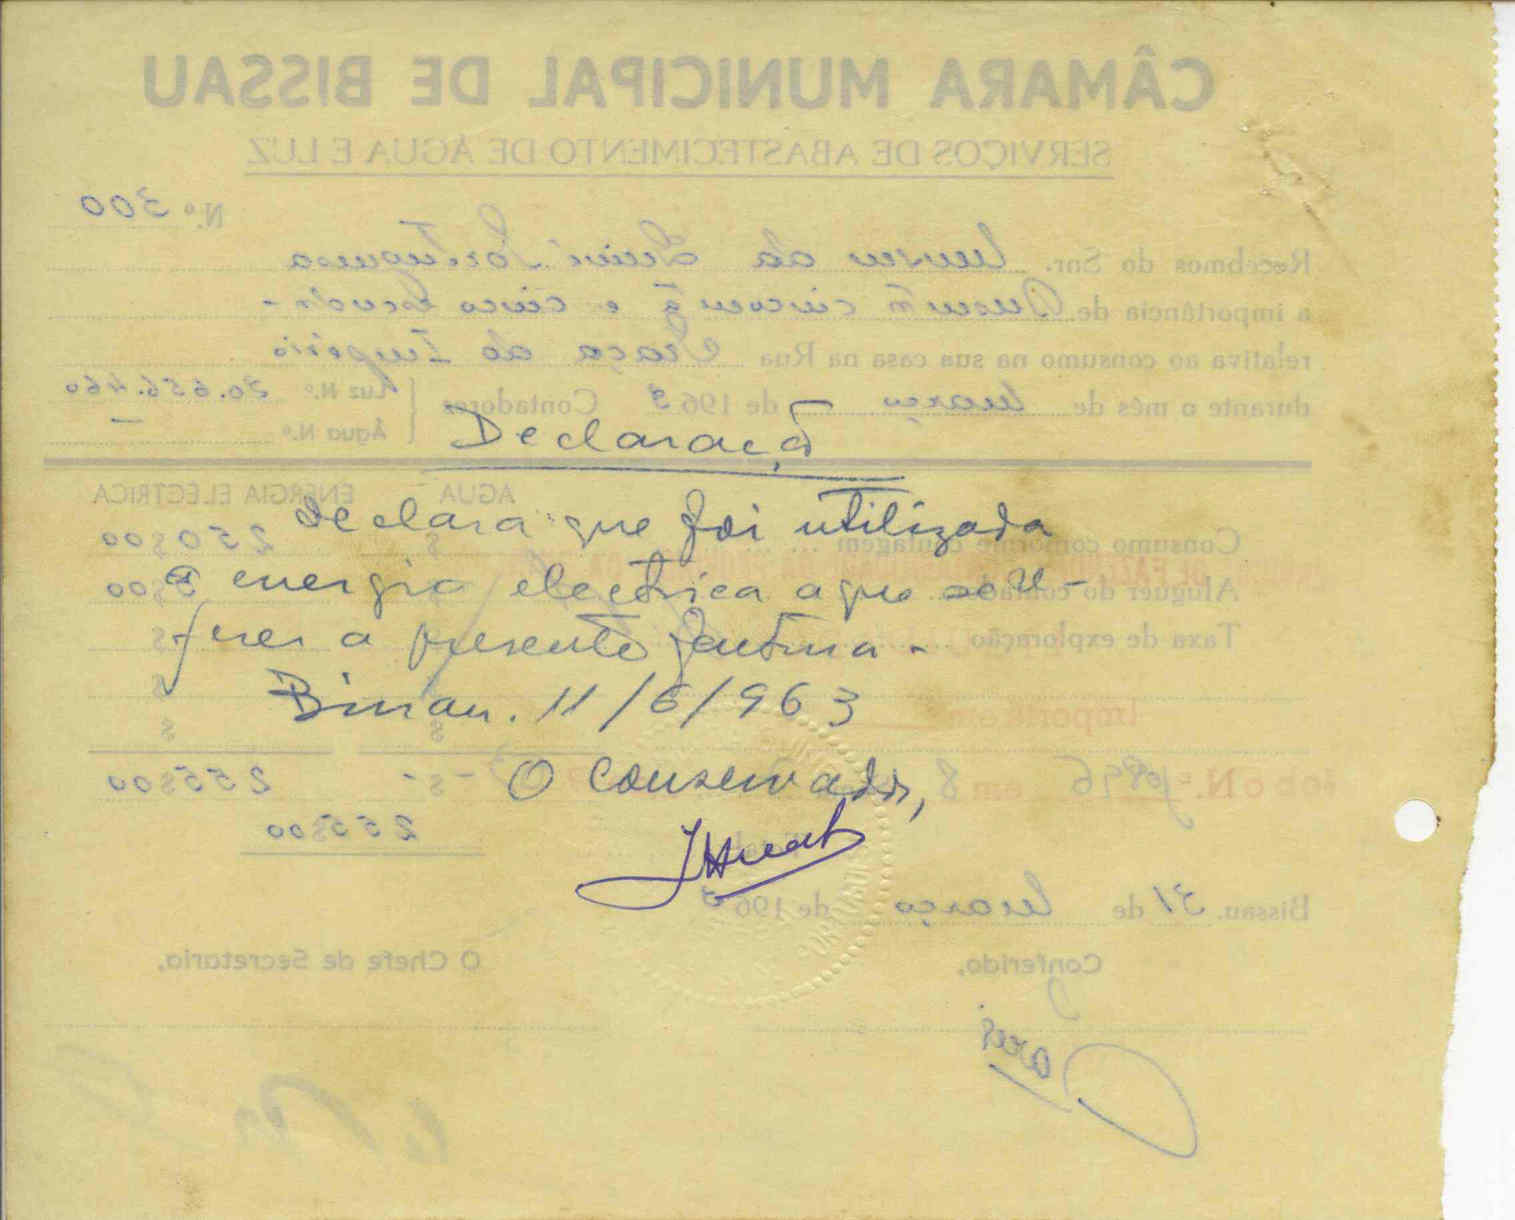 CÂMARA MUNICIPAL DE BISSAU
SERVIÇOS DE ABASTECIMENTO DE ÁGUA E LUZ
N.º 300
Recebemos do Snr. Museu da Guiné Portuguesa
a importância de Duzentos cinquenta e cinco escudos
relativa ao consumo na sua casa na Rua Praça do Império
durante o mês de Março de 1963 Contadores Luz N.º 20.656.460
Água N.º —
Declaração
AGUA ENERGIA ELECTRICA
Declara que foi utilizada
Consumo conforme contagem $ 250$00
a energia electrica a que se re-
Aluguer do contador 5$00
fere a presente factura -
Taxa de exploração $
Bissau. 11/6/963
Importe em
O Conservador,
255$00
255$00
Bissau. 31 de Março de 1963
Conferido,
O Chefe de Secretaria,